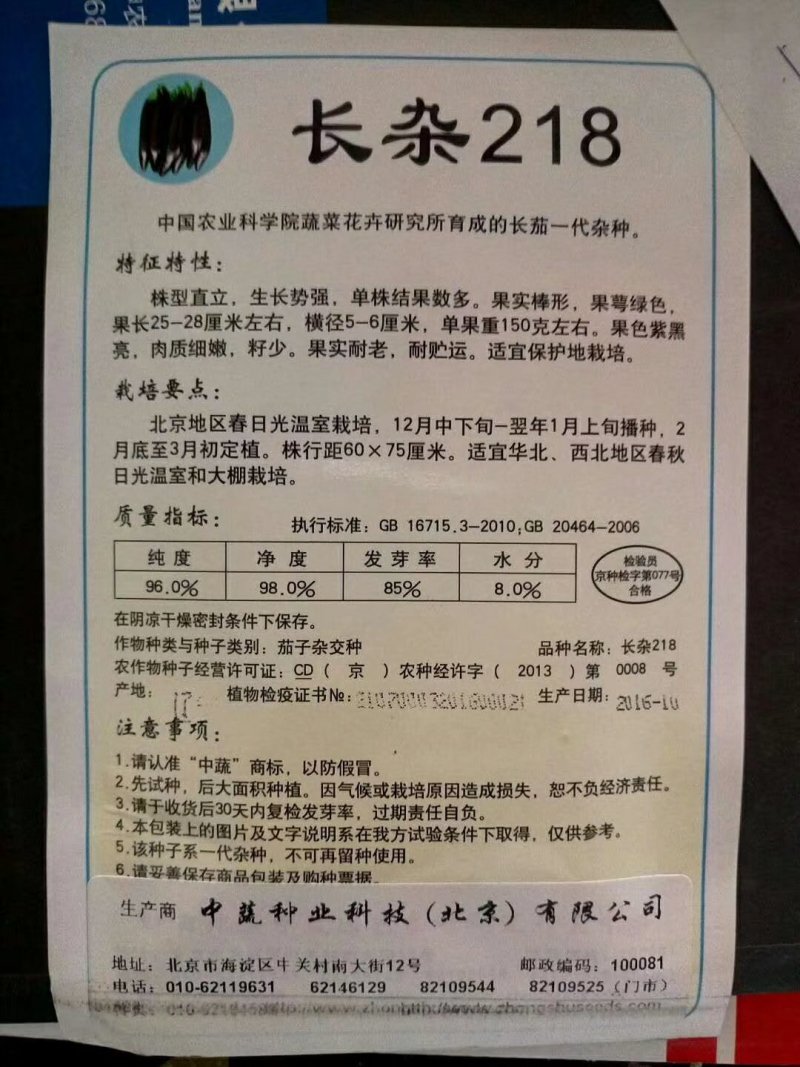 长杂218
中国农业科学院蔬菜花卉研究所育成的长茄一代杂种。
特征特性：
株型直立，生长势强，单株结果数多。果实棒形，果萼绿色，
果长25-28厘米左右，横径5-6厘米，单果重150克左右。果色紫黑
亮，肉质细嫩，籽少。果实耐老，耐贮运。适宜保护地栽培。
栽培要点：
北京地区春日光温室栽培，12月中下旬-翌年1月上旬播种，2
月底至3月初定植。株行距60×75厘米。适宜华北、西北地区春秋
日光温室和大棚栽培。
质量指标：
执行标准：GB 16715.3-2010;GB 20464-2006
纯度 净度 发芽率 水分
96.0% 98.0% 85% 8.0%
检验员
京种检字第077号
合格
在阴凉干燥密封条件下保存。
作物种类与种子类别：茄子杂交种 品种名称：长杂218
农作物种子经营许可证：CD（京）农种经许字（2013）第 0008 号
产地： 植物检疫证书№： 生产日期：2016-10
注意事项：
1.请认准“中蔬”商标，以防假冒。
2.先试种，后大面积种植。因气候或栽培原因造成损失，恕不负经济责任。
3.请于收货后30天内复检发芽率，过期责任自负。
4.本包装上的图片及文字说明系在我方试验条件下取得，仅供参考。
5.该种子系一代杂种，不可再留种使用。
6.请妥善保存商品包装及购种票据。
生产商 中蔬种业科技（北京）有限公司
地址：北京市海淀区中关村南大街12号 邮政编码：100081
电话：010-62119631 62146129 82109544 82109525（门市）